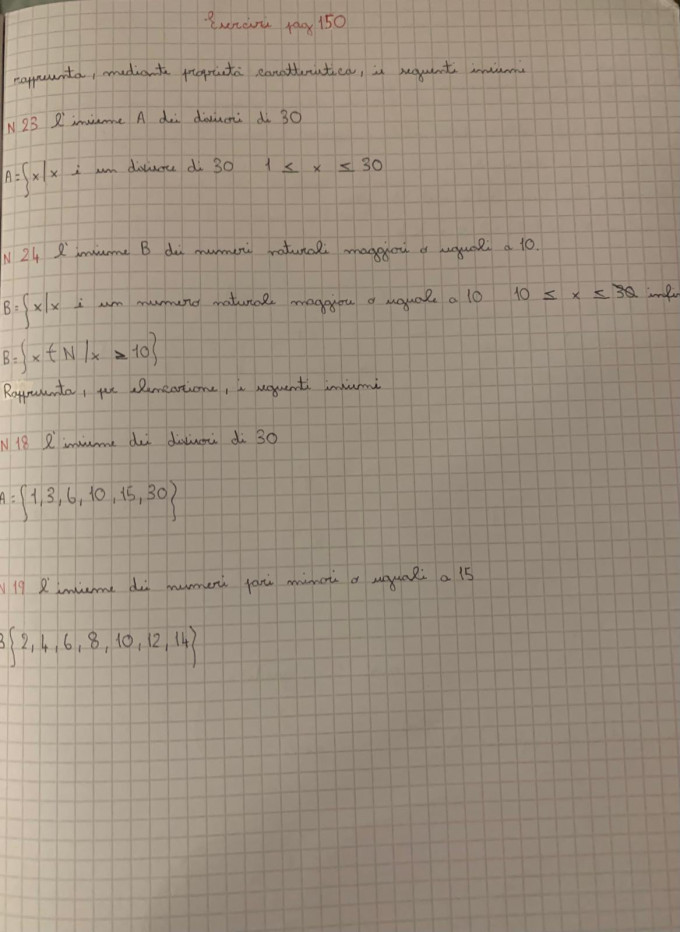 Esercizi pag 150
rappresenta, mediante proprietà caratteristica, i seguenti insiemi
N 23 l'insieme A dei divisori di 30
A={x/x è un divisore di 30 1 ≤ x ≤ 30
N 24 l'insieme B dei numeri naturali maggiori o uguali a 10.
B={x/x è un numero naturale maggiore o uguale a 10 10 ≤ x ≤
B={x ∈ N/x ≥ 10}
Rappresenta, per elencazione, i seguenti insiemi
N 18 l'insieme dei divisori di 30
A={1,3,6,10,15,30}
N 19 l'insieme dei numeri pari minori o uguali a 15
B{2,4,6,8,10,12,14}